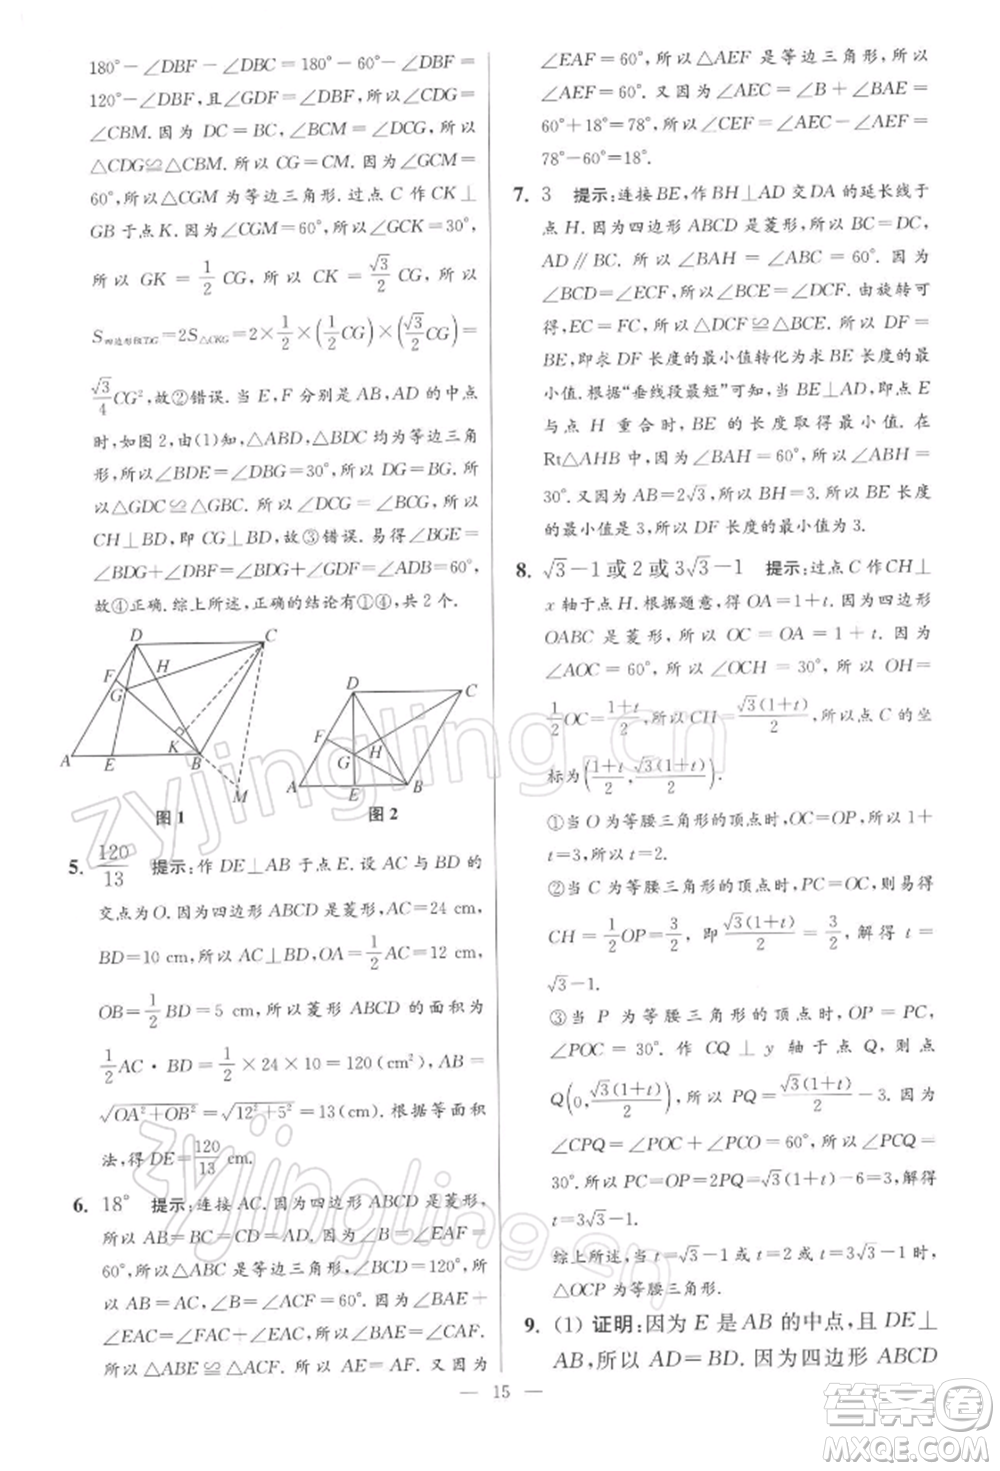 180°－∠DBF－∠DBC＝180°－60°－∠DBF＝
120°－∠DBF,且∠GDF＝∠DBF,所以∠CDG＝
∠CBM.因为 DC＝BC,∠BCM＝∠DCG,所以
△CDG≌△CBM.所以 CG＝CM.因为∠GCM＝
60°,所以△CGM 为等边三角形.过点 C 作 CK⊥
GB 于点 K.因为∠CGM＝60°,所以∠GCK＝30°,
所以 GK＝1/2 CG,所以 CK＝√3/2 CG,所以
S四边形BCDG＝2S△CKG＝2×1/2×(1/2 CG)×(√3/2 CG)＝
√3/4 CG²,故②错误.当 E,F 分别是 AB,AD 的中点
时,如图 2,由(1)知,△ABD,△BDC 均为等边三角
形,所以∠BDE＝∠DBG＝30°,所以 DG＝BG.所
以△GDC≌△GBC.所以∠DCG＝∠BCG.所以
CH⊥BD,即 CG⊥BD,故③错误.易得∠BGE＝
∠BDG＋∠DBF＝∠BDG＋∠GDF＝∠ADB＝60°,
故④正确.综上所述,正确的结论有①④,共 2 个.
D C F G H K A E B M
图 1
D C F G H A E B
图 2
5. 120/13 提示:作 DE⊥AB 于点 E.设 AC 与 BD 的
交点为 O.因为四边形 ABCD 是菱形,AC＝24 cm,
BD＝10 cm,所以 AC⊥BD,OA＝1/2 AC＝12 cm,
OB＝1/2 BD＝5 cm,所以菱形 ABCD 的面积为
1/2 AC·BD＝1/2×24×10＝120(cm²),AB＝
√(OA²＋OB²)＝√(12²＋5²)＝13(cm).根据等面积
法,得 DE＝120/13 cm.
6. 18° 提示:连接 AC.因为四边形 ABCD 是菱形,
所以 AB＝BC＝CD＝AD.因为∠B＝∠EAF＝
60°,所以△ABC 是等边三角形,∠BCD＝120°,所
以 AB＝AC,∠B＝∠ACF＝60°.因为∠BAE＋
∠EAC＝∠FAC＋∠EAC,所以∠BAE＝∠CAF.
所以△ABE≌△ACF.所以 AE＝AF.又因为
∠EAF＝60°,所以△AEF 是等边三角形,所以
∠AEF＝60°.又因为∠AEC＝∠B＋∠BAE＝
60°＋18°＝78°,所以∠CEF＝∠AEC－∠AEF＝
78°－60°＝18°.
7. 3 提示:连接 BE,作 BH⊥AD 交 DA 的延长线于
点 H.因为四边形 ABCD 是菱形,所以 BC＝DC,
AD∥BC.所以∠BAH＝∠ABC＝60°.因为
∠BCD＝∠ECF,所以∠BCE＝∠DCF.由旋转可
得,EC＝FC,所以△DCF≌△BCE.所以 DF＝
BE,即求 DF 长度的最小值转化为求 BE 长度的最
小值.根据“垂线段最短”可知,当 BE⊥AD,即点 E
与点 H 重合时,BE 的长度取得最小值.在
Rt△AHB 中,因为∠BAH＝60°,所以∠ABH＝
30°.又因为 AB＝2√3,所以 BH＝3.所以 BE 长度
的最小值是 3,所以 DF 长度的最小值为 3.
8. √3－1 或 2 或 3√3－1 提示:过点 C 作 CH⊥
x 轴于点 H.根据题意,得 OA＝1＋t.因为四边形
OABC 是菱形,所以 OC＝OA＝1＋t.因为
∠AOC＝60°,所以∠OCH＝30°.所以 OH＝
1/2 OC＝(1＋t)/2,所以 CH＝√3(1＋t)/2,所以点 C 的坐
标为((1＋t)/2,√3(1＋t)/2).
①当 O 为等腰三角形的顶点时,OC＝OP,所以 1＋
t＝3,所以 t＝2.
②当 C 为等腰三角形的顶点时,PC＝OC,则易得
CH＝1/2 OP＝3/2,即 √3(1＋t)/2＝3/2,解得 t＝
√3－1.
③当 P 为等腰三角形的顶点时,OP＝PC,
∠POC＝30°.作 CQ⊥y 轴于点 Q,则点
Q(0,√3(1＋t)/2),所以 PQ＝√3(1＋t)/2－3.因为
∠CPQ＝∠POC＋∠PCO＝60°,所以∠PCQ＝
30°.所以 PC＝OP＝2PQ＝√3(1＋t)－6＝3,
所以 t＝3√3－1.
综上所述,当 t＝√3－1 或 t＝2 或 t＝3√3－1 时,
△OCP 为等腰三角形.
9. (1) 证明:因为 E 是 AB 的中点,且 DE⊥
AB,所以 AD＝BD.因为四边形 ABCD
— 15 —
zyjingling.cn
zyjingling.cn
答案卷
MXQE.COM